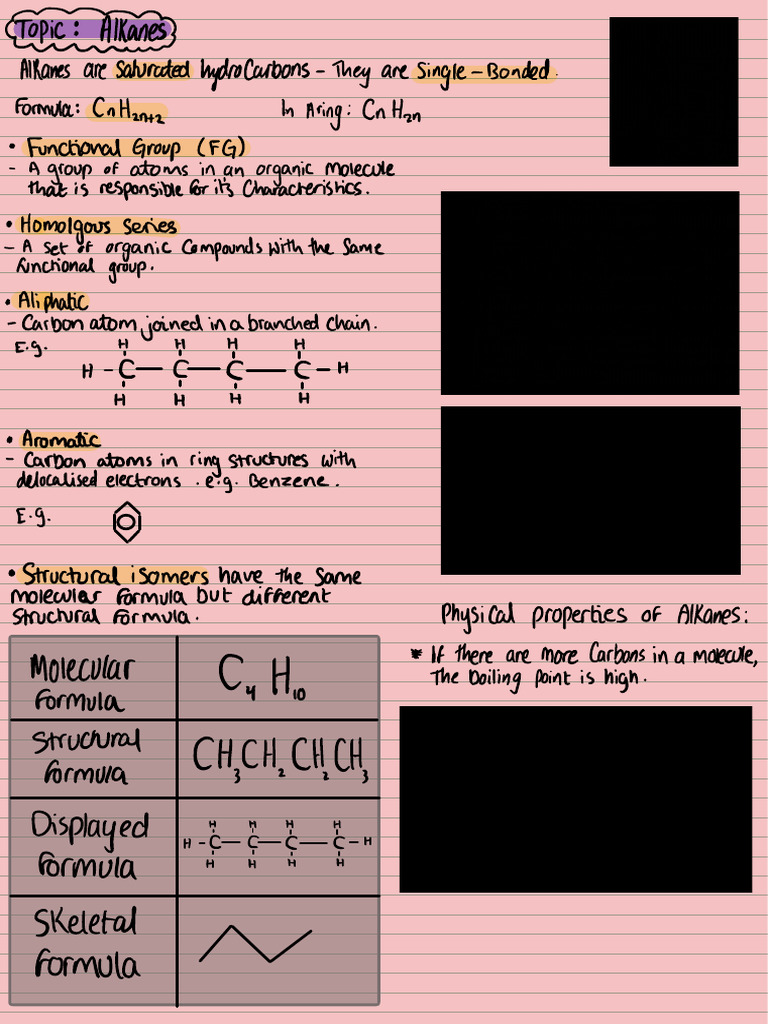 Topic: Alkanes
Alkanes are saturated hydrocarbons - They are Single-Bonded.
Formula: CnH2n+2 In Aring: CnH2n
• Functional Group (FG)
- A group of atoms in an organic molecule
that is responsible for it's characteristics.
• Homolgous series
- A set of organic compounds with the same
functional group.
• Aliphatic
- Carbon atom joined in a branched chain.
E.g.
H H H H
H - C - C - C - C - H
H H H H
• Aromatic
- Carbon atoms in ring structures with
delocalised electrons . e.g. Benzene.
E.g.
• Structural isomers have the same
molecular formula but different
structural formula.
Molecular
formula
C4H10
Structural
formula
CH3CH2CH2CH3
Displayed
formula
H H H H
H - C - C - C - C - H
H H H H
Skeletal
formula
Physical properties of Alkanes:
* If there are more Carbons in a molecule,
The boiling point is high.